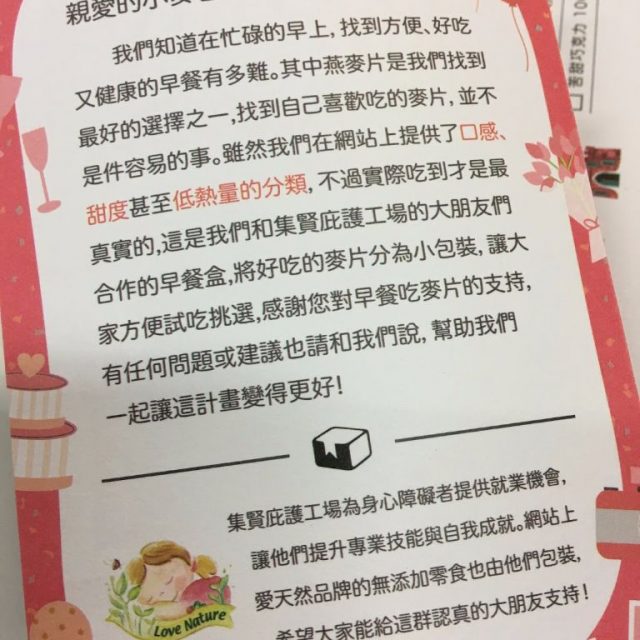 親愛的小麥
我們知道在忙碌的早上, 找到方便、好吃
又健康的早餐有多難。其中燕麥片是我們找到
最好的選擇之一,找到自己喜歡吃的麥片, 並不
是件容易的事。雖然我們在網站上提供了口感、
甜度甚至低熱量的分類, 不過實際吃到才是最
真實的,這是我們和集賢庇護工場的大朋友們
合作的早餐盒,將好吃的麥片分為小包裝, 讓大
家方便試吃挑選,感謝您對早餐吃麥片的支持,
有任何問題或建議也請和我們說, 幫助我們
一起讓這計畫變得更好!
集賢庇護工場為身心障礙者提供就業機會,
讓他們提升專業技能與自我成就。網站上
愛天然品牌的無添加零食也由他們包裝,
希望大家能給這群認真的大朋友支持!
Love Nature
苦甜巧克力 10